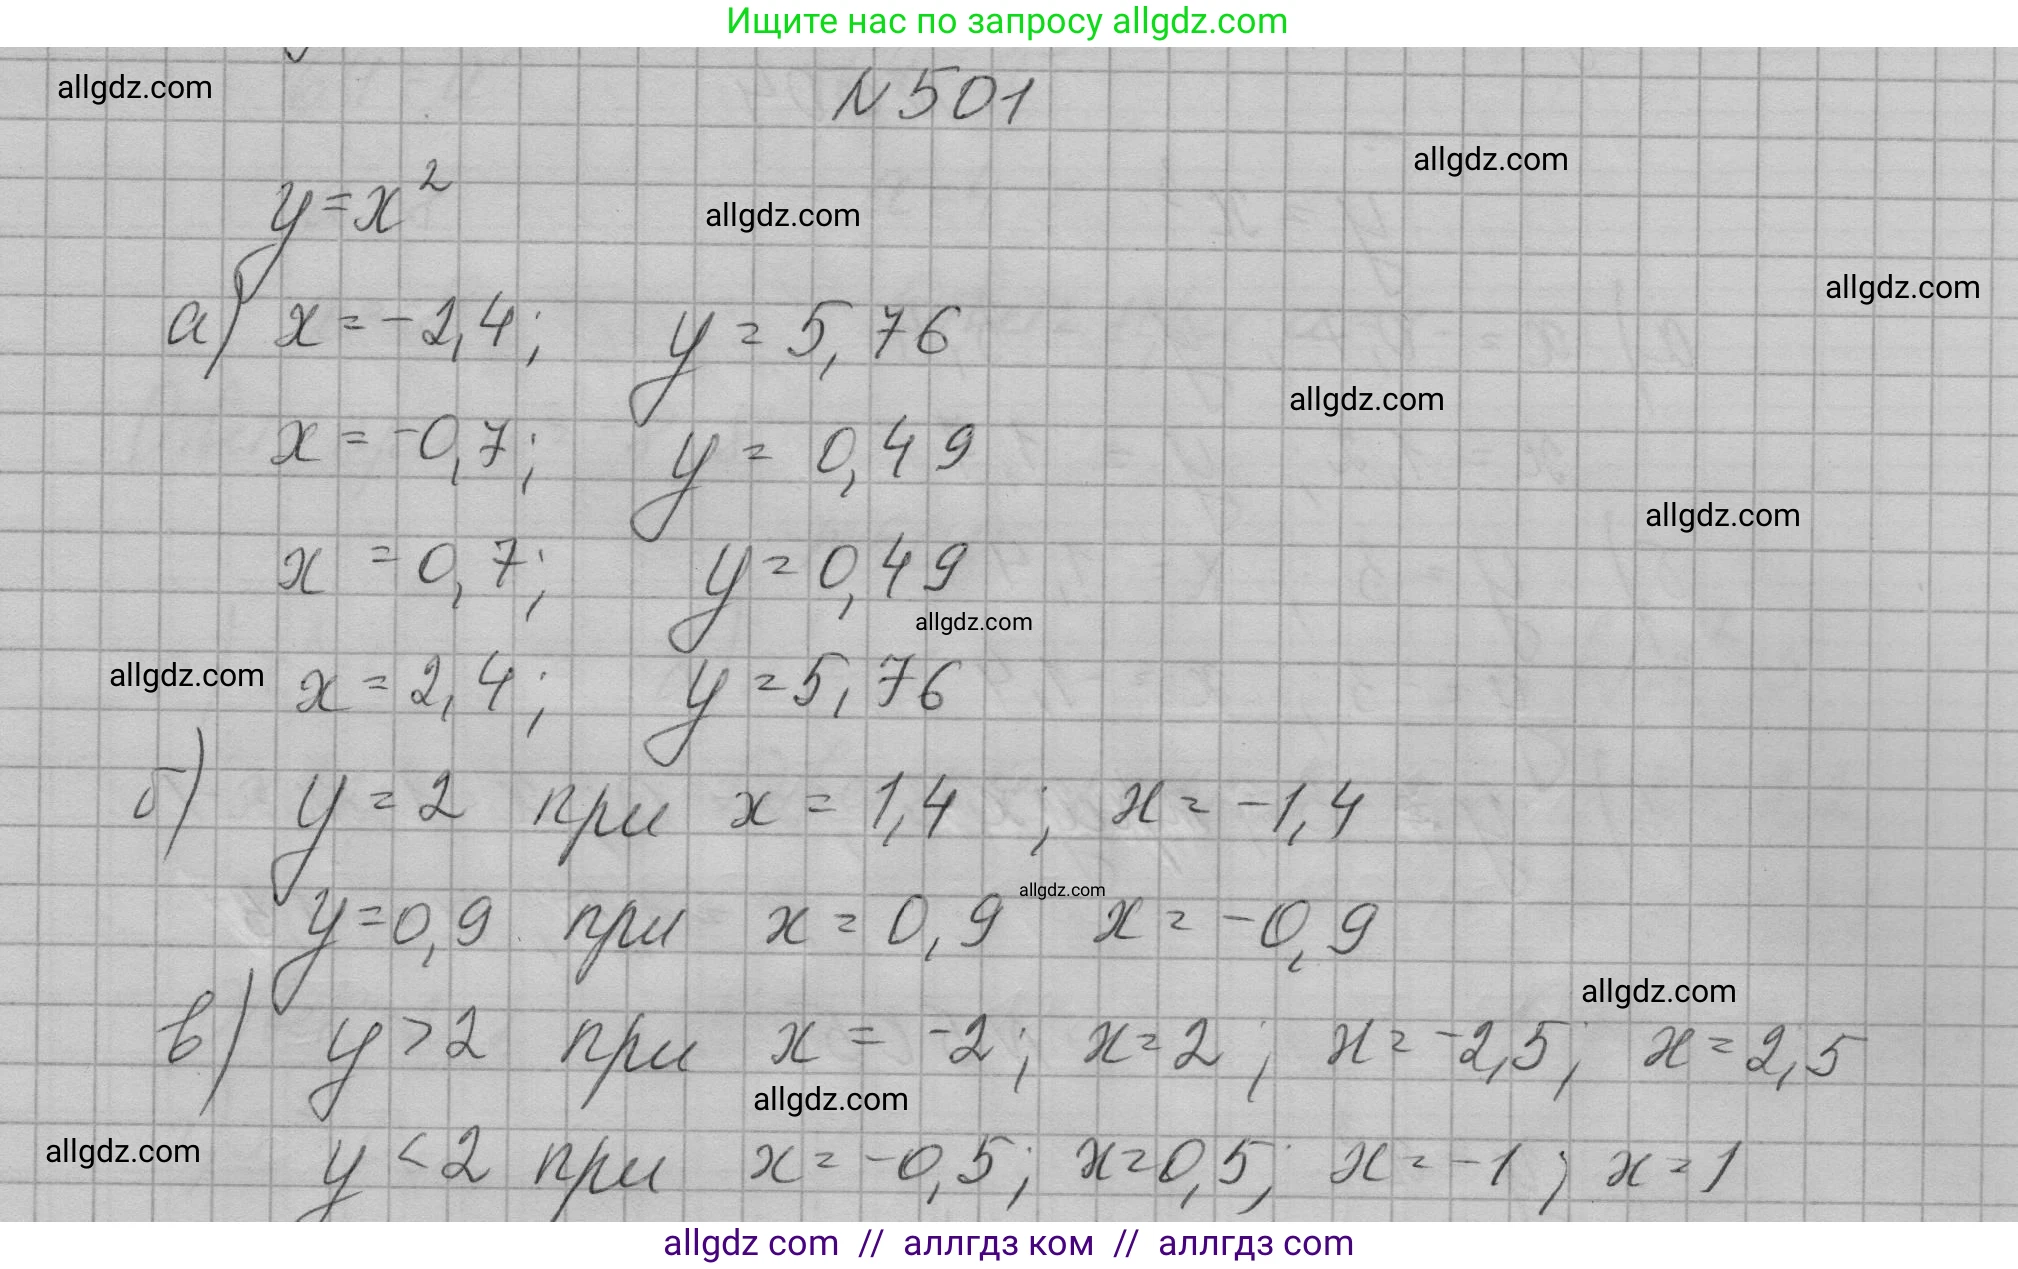 Ищите нас по запросу allgdz.com
allgdz.com
N 501
allgdz.com
y = x²
allgdz.com
allgdz.com
а) x = -2,4; y = 5,76
allgdz.com
x = -0,7; y = 0,49
allgdz.com
x = 0,7; y = 0,49
allgdz.com
allgdz.com
x = 2,4; y = 5,76
б) y = 2 при x = 1,4 ; x = -1,4
allgdz.com
y = 0,9 при x = 0,9 x = -0,9
allgdz.com
в) y > 2 при x = -2; x = 2; x = -2,5; x = 2,5
allgdz.com
allgdz.com
y < 2 при x = -0,5; x = 0,5; x = -1; x = 1
allgdz com // аллгдз ком // аллгдз com